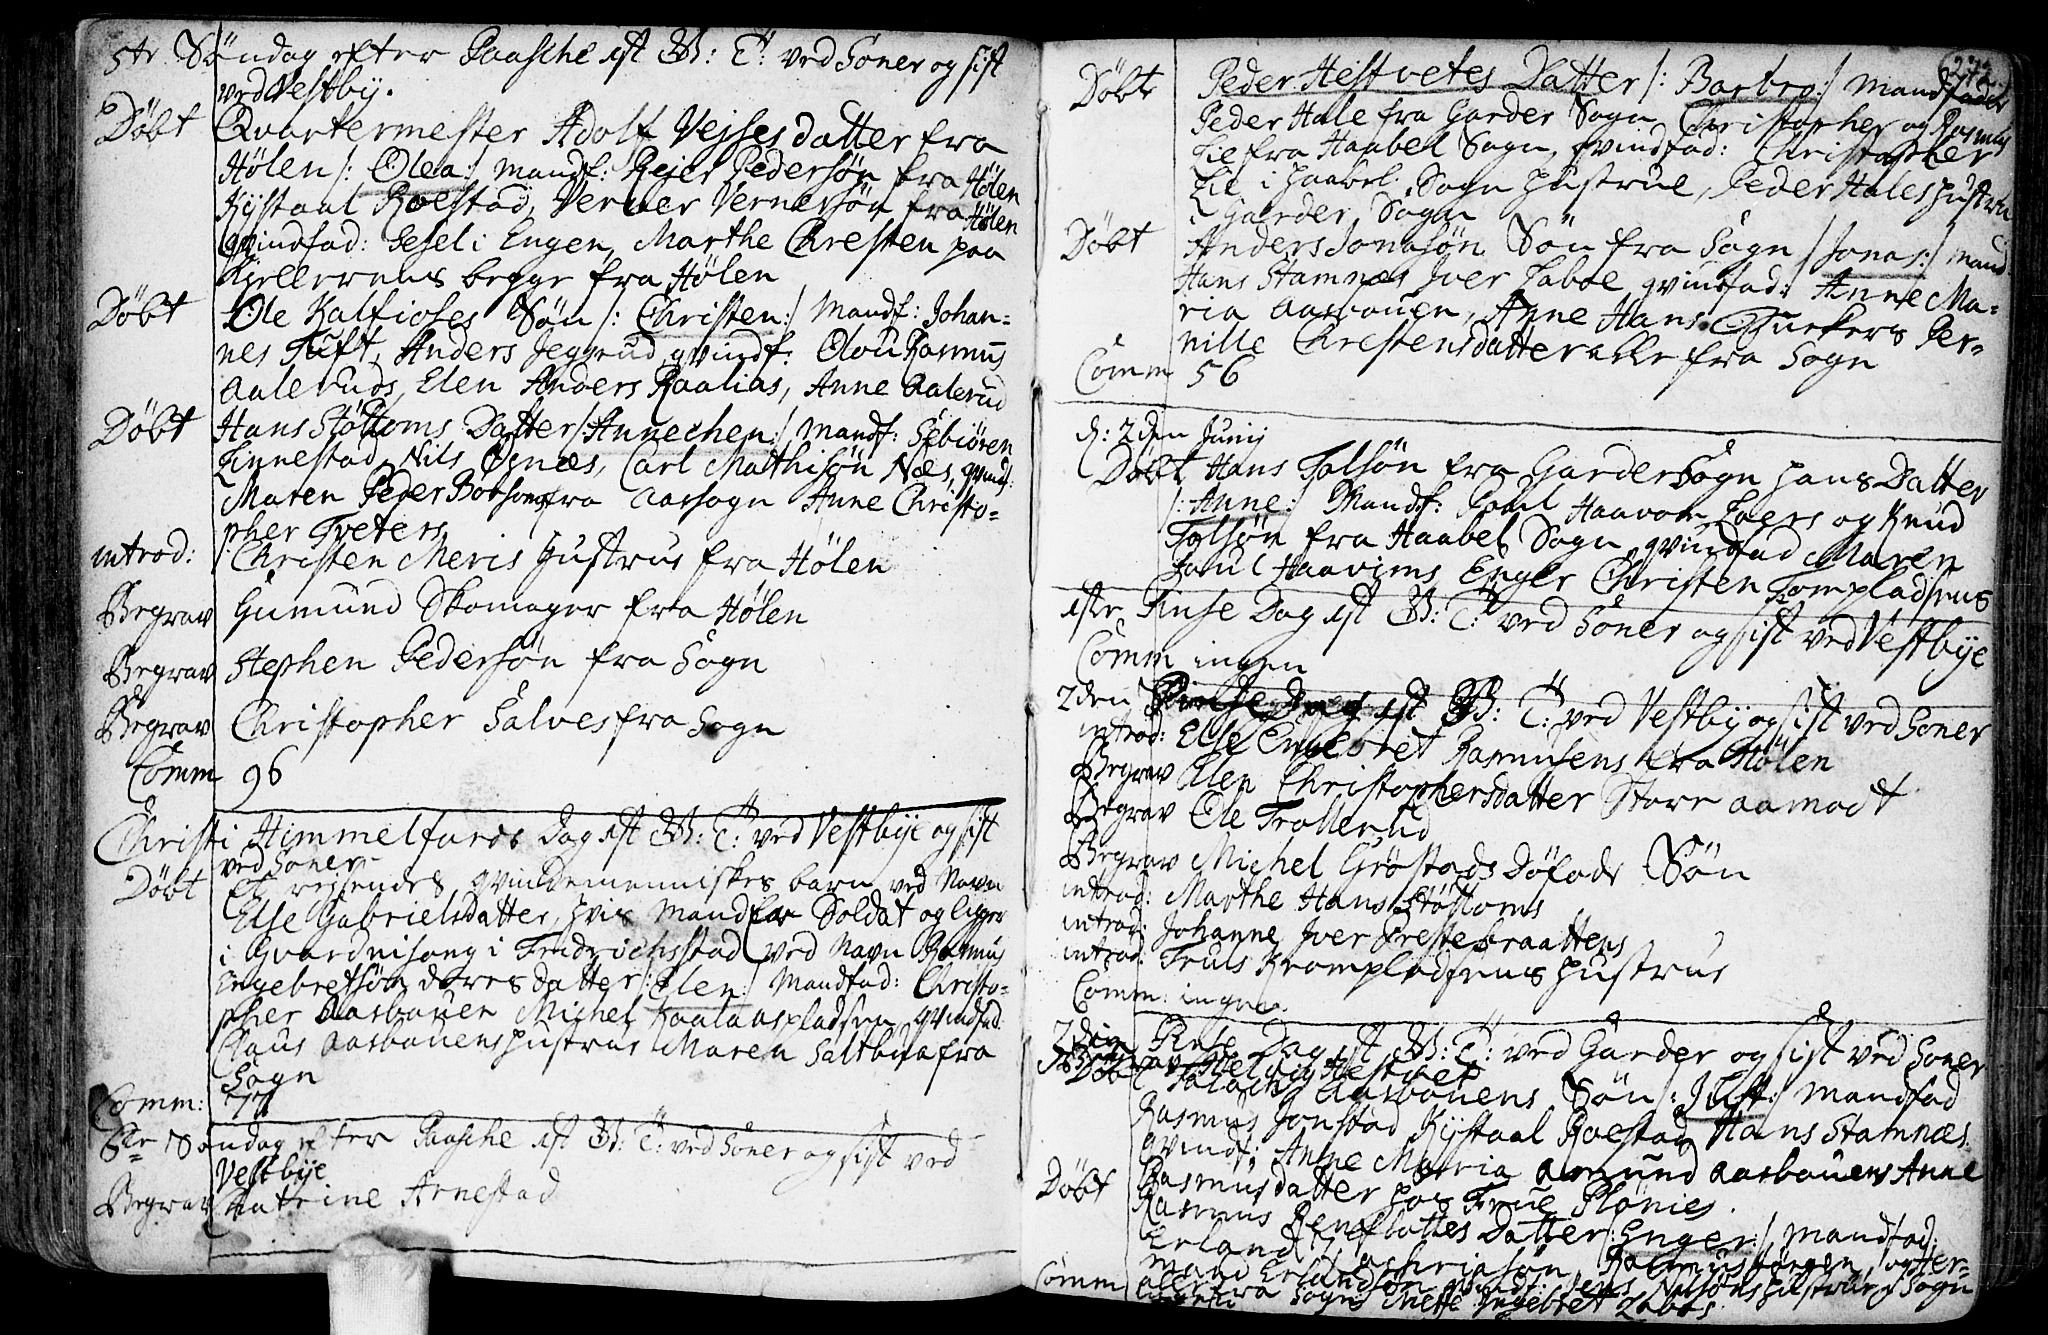 5te Söndag efter Paasche ist W: T: ved Soner og sist
ved Vestbÿ.
Döbt Qvartermester Adolf Vejses datter fra
Hölen /: Olea :/ mandf: Reier Pedersön fra Hölen
Kystaal Roestad, Verner Vernersön fra Hölen
qvindfad: Sesel i Engen, Marthe Christen paa
Kjellerens begge fra Hölen
Döbt Ole Kalfioses Sön /: Christen :/ Mandf: Johan=
nes Tuft, Anders Jeggerud qvindf: Olou Rasmus
Aaleruds, Elen Anders Raalias, Anne Aalerud
Döbt Hans Stöttoms Datter /: Annechen :/ Mandf: Sebiören
Finnestad, Nils Ösnæs, Carl Mathisön Næs, qvindf:
Maren Peder Botsons fra Aassogn Anne Christo=
pher Tveters
introd: Christen Meris Hustrue fra Hölen
Begrav Gumund Skomager fra Hölen
Begrav Stephen Pedersön fra Sogn
Begrav Christopher Salves fra Sogn
Comm 96
Christi Himmelfards Dag ist W: T: ved Vestbÿe og sist
ved Soner
Döbt Et rejsendes qvindemenniskes barn ved Navn
Else Gabrielsdatter, hvis mand er Soldat og ligger
i Gvardnisong i Fridrichsstad ved Navn Rasmus
Engebretsön deres datter /: Elen :/ Mandfad: Christo=
pher Aasbauen Michel Kaalaaspladsen, qvindfad:
Claus Aasbauens Hustrue Maren Saltbua fra
Sogn
Comm: 77
6te Söndag efter Paasche ist W: T: ved Soner og sist ved
Vestbÿe
Begrav Katrine Arnestad
272
Döbt Peder Hestvetes Datter /: Barbro :/ mandfader
Peder Hale fra Garder Sogn, Christopher og Rasmus
Lie fra Haabel Sogn, qvindfad: Christopher
Lie i Haabel Sogn Hustrue, Peder Hales Hustrue
i Garder Sogn
Döbt Anders Jonasön Sön fra Sogn /: Jonas :/ mand
Hans Stamnæs Iver Laboe qvindfad: Anne Ma=
ria Aasbauen, Anne Hans Per=
nille Christensdatter alle fra Sogn
Comm 56
d: 2den Junij
Döbt Hans Folsön fra Garder Sogn hans Datter
/: Anne :/ Mandf: Poul Haavom Eners og Knud
Folsön fra Haabel Sogn qvindfad Maren
Poul Haavims Enger Christen Tompladsens
1ste Pinse Dag ist W: T: ved Soner og sist ved Vestbÿe
Comm ingen
2den Pinse Dag ist W: T: ved Vestby og sist ved Soner
introd: Else Engebret Rasmusens fra Hölen
Begrav Elen Christophersdatter Store aamodt
Begrav Ole Trollerud
Begrav Michel Gröstads Döfode Sön
introd: Marthe Hans Stöttoms
introd: Johanne Iver Prestebraattens
introd: Truls Krompladsens Hustrue
Comm: ingen.
2den Pinse Dag ist W: T: ved Garder og sist ved Soner
Begrav Helvig Hestvet
Döbt Aasbauens Sön /: Just :/ mandfad
Rasmus Jonstad Kystaal Roestad, Hans Stamnæs.
qvindf: Anne Maria Amund Aasbauens Anne
Rasmusdatter hos Frue Plönies.
Döbt Rasmus Reneflottes Datter /: Enger :/ Mandfad:
Erland Zachriasön, Rasmus Törgen, og Her=
mand Erlandsön qvindf: Jens Nilsöns Hustrue i Sogn
alle fra Sogn Mette Ingebret Laboes.
Comm